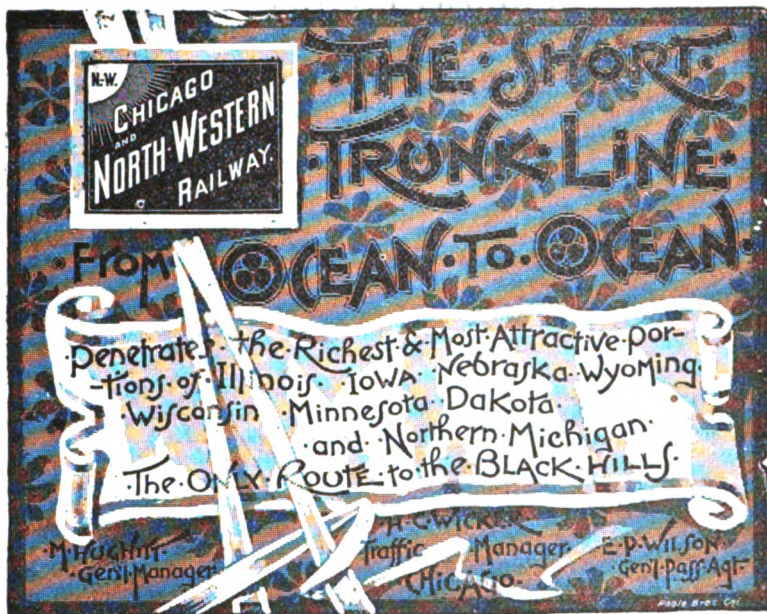 N-W.
CHICAGO
AND
NORTH-WESTERN
RAILWAY.
·THE·SHORT·
·TRUNK·LINE·
·From·OCEAN·To·OCEAN·
·Penetrates·the·Richest·&·Most·Attractive·Por-
-tions·of·Illinois·Iowa·Nebraska·Wyoming·
·Wisconsin·Minnesota·Dakota·
·and·Northern·Michigan·
·The·ONLY·ROUTE·to·the·BLACK·HILLS·
·H·C·WICKER·
·Traffic·Manager·
·CHICAGO·
·M·HUGHITT·
·Gen'l·Manager·
·E·P·WILSON·
·Gen'l·Pass·Agt·
Poole Bros.